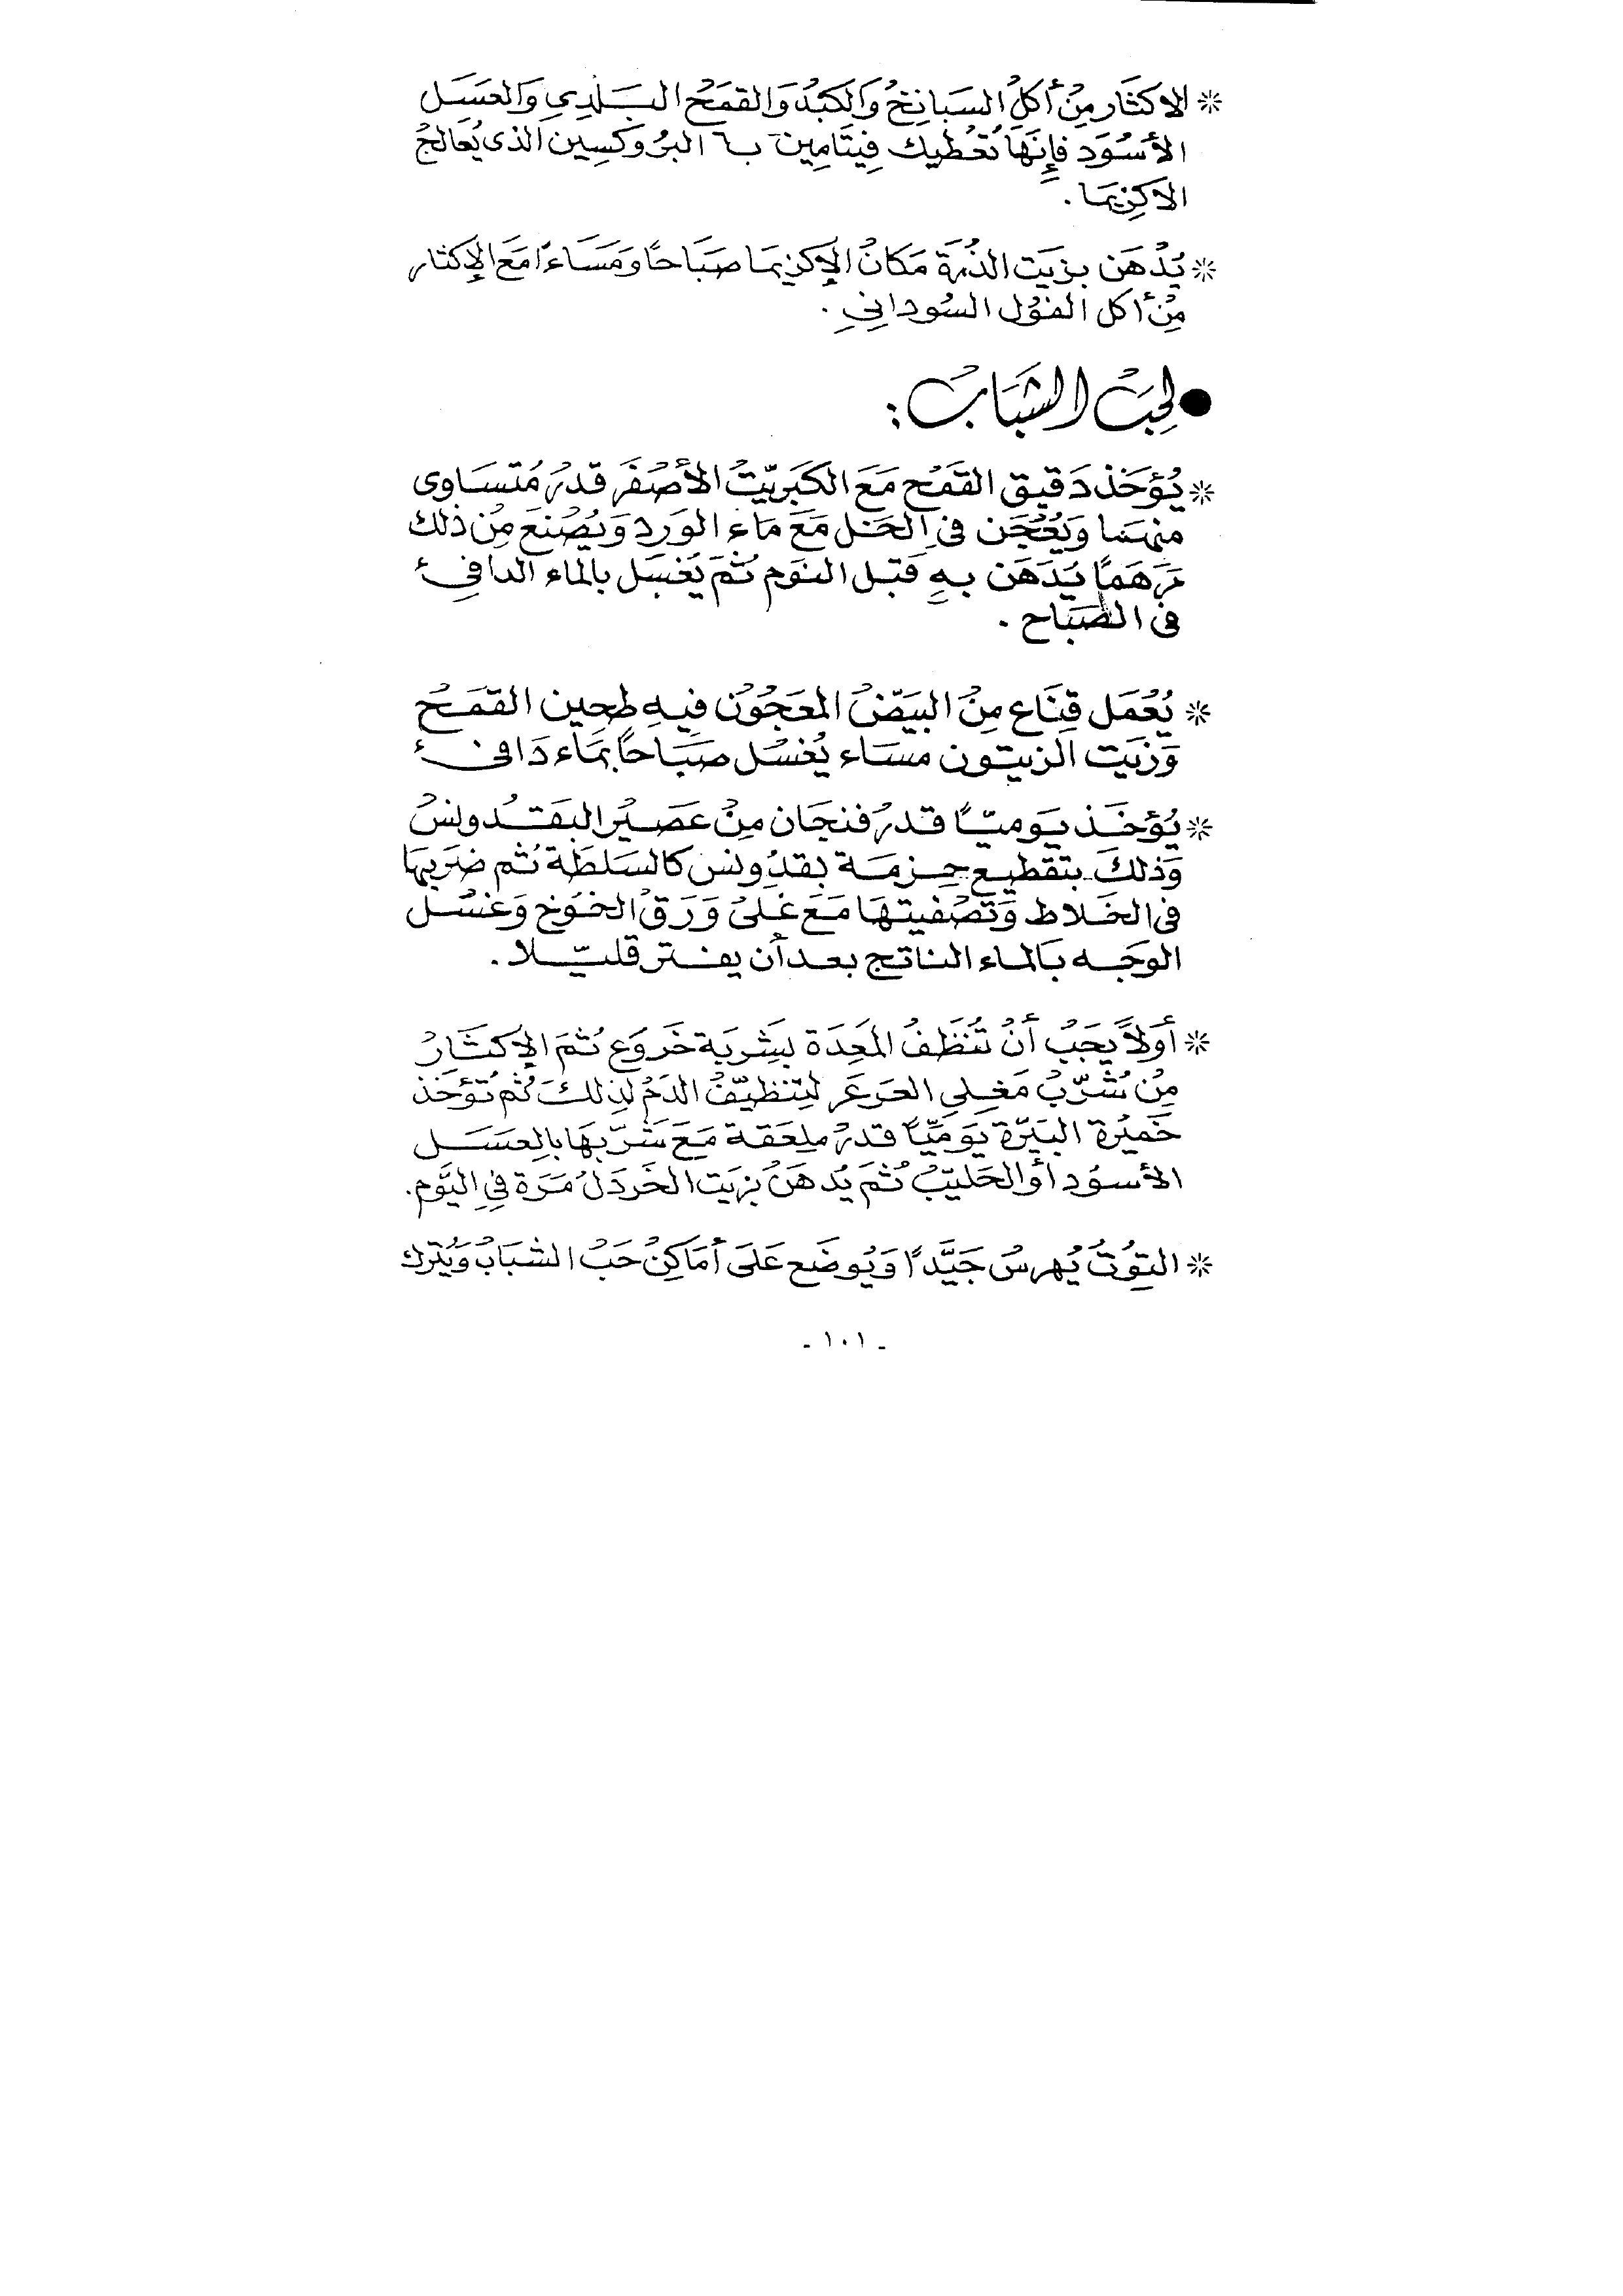 * الاكثَار مِنْ أكلِ السَبانِخْ وَالكَبدْ وَالقمَحْ البَلَدِي وَالعَسَل
الأسْوَد فإِنَهَا تُعْطيك فِيتَامِين ب٦ البرُوكسِين الذى يُعَالجْ
الاكزِيمَا .
* يُدْهَن بزيَت الذُرَة مَكانْ الإكزيمَا صَبَاحًا وَمَسَاءً مَعَ الإكثار
مِنْ أكل الفوْل السُودانِي .
● لِحَبْ الشَبَابْ :
* يُؤخَذ دَقيق القَمْح مَعَ الكَبَرِيّتْ الأصْفَر قدرْ مُتسَاوى
منهمَا وَيُعْجَن فى الخَل مَعَ مَاء الوَرد وَيُصْنعَ مِنْ ذلك
مَرَهَمًا يُدَهَن بهِ قَبل النوَم ثُمَ يُغسَل بالمَاء الدافِئ
فى الصَبَاح .
* يُعْمَل قِنَاع مِنْ البَيَضْ المعَجُوْن فيهِ طحِين القمَحْ
وَزَيَت الزيتون مسَاء يُغسْل صبَاحًا بمَاء دَافئ
* يُؤخَذ يَوميّاً قدرْ فنجَان مِنْ عَصَيْر البقَدُونسْ
وَذلكَ بتقطيع حِزمَة بقدُونس كالسَلطَة ثُم ضَربهَا
فى الخَلاط وَتصْفيتهَا مَعَ غَلىْ وَرَقْ الخوَخ وَغسْل
الوجَه بَالمَاء الناتج بعد أن يفتر قليّلا .
* أوَلاً يَجَبْ أنْ تُنَظَفْ المَعِدَة بشِربَة خَروَع ثُمَ الإكثَارْ
مِنْ شُرّبْ مَغلِي العَرعَر لِتنظيّفْ الدَمْ لذِلكَ ثُم تُؤخَذ
خَميَرة البيَرّة يَوَميّاً قدرْ ملِعَقة مَعَ شَرّبهَا بالِعسَل
الأسوُد أوْ الحَليّبْ ثُمَ يُدهَنْ بزيَت الخَردَلْ مَرَة فِي اليَوَم .
* التوُتْ يُهرسْ جَيَّداً وَيُوضَع عَلَى أمَاكِنْ حَبْ الشبَابْ وَيُترك
- ١٠١ -